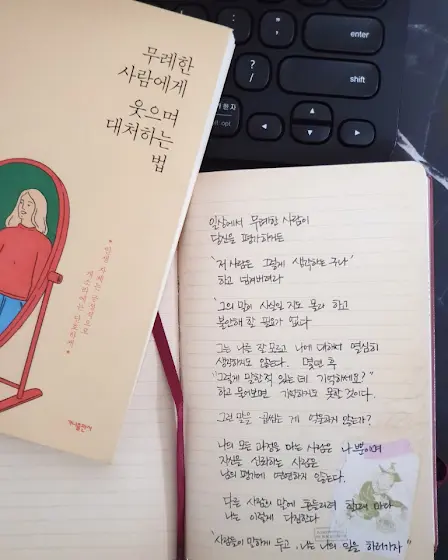 무례한
사람에게
웃으며
대처하는
법
인생 자체는 긍정적으로
개소리에는 단호하게
가나출판사
enter
shift
?
/
한자
alt opt
일상에서 무례한 사람이
당신을 평가하거든
'저 사람은 그렇게 생각하는구나'
하고 넘겨버려라
'그의 말이 사실일 지도 몰라' 하고
불안해 할 필요가 없다
그는 나를 잘 모르고 나에 대해서 열심히
생각하지도 않는다. 몇년 후
"그렇게 말한 적 있는데 기억하세요?"
하고 물어보면 기억하지도 못할 것이다.
그런 말을 곱씹는 게 억울하지 않은가?
나의 모든 과정을 아는 사람은 나뿐이며
자신을 신뢰하는 사람은
남의 평가에 연연하지 않는다.
다른 사람의 말에 흔들리려 할 때마다
나는 이렇게 다짐한다
"사람들이 말하게 두고, 나는 나의 일을 하러가자"